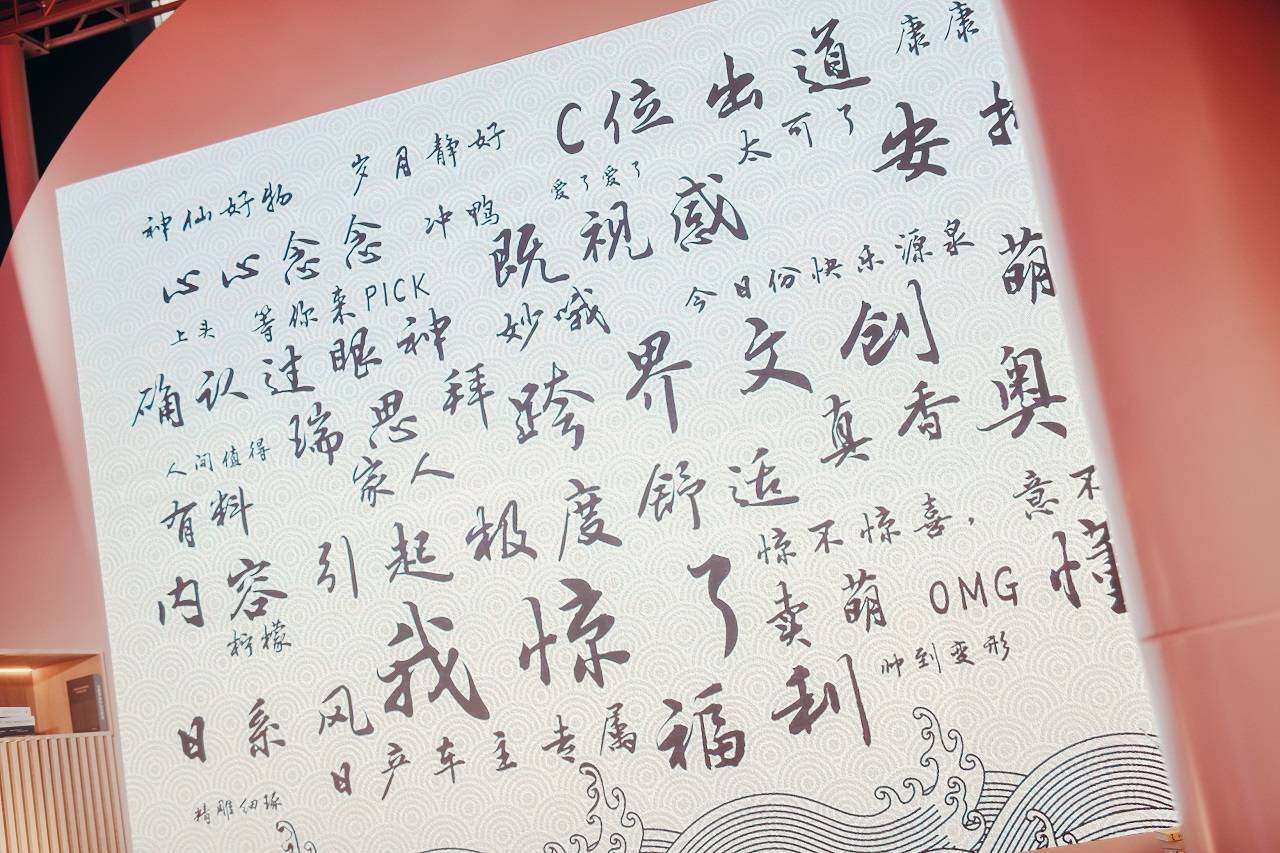 康康
C位出道
岁月静好
太可了
安
神仙好物
爱了爱了
冲鸭
心心念念
既视感
今日份快乐源泉
萌
上头
等你来PICK
妙哦
确认过眼神
跨界文创
瑞思拜
真香
奥
人间值得
家人
有料
引起极度舒适
惊不惊喜，意不
内容
柠檬
我惊了
卖萌
OMG
懂
帅到变形
日系风
福利
日产车主专属
精雕细琢